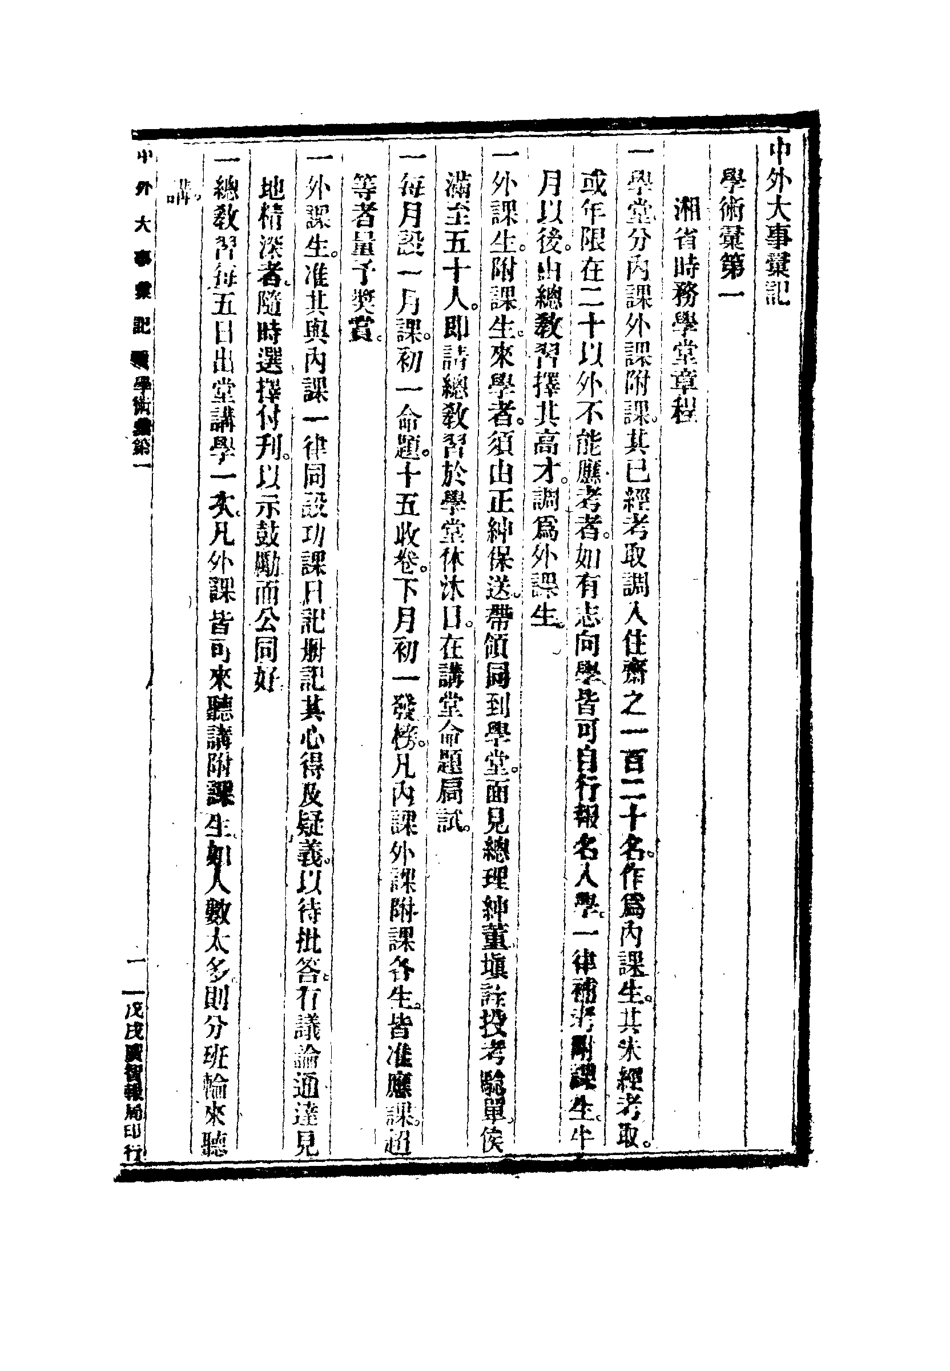 中外大事彙記
學術彙第一
湘省時務學堂章程
一學堂分內課外課附課。其已經考取調入住齋之一百二十名。作爲內課生。其未經考取。
或年限在二十以外不能應考者。如有志向學、皆可自行報名入學。一律補考附課生。半
月以後。由總教習擇其高才。調爲外課生。
一外課生。附課生。來學者。須由正紳保送。帶領同到學堂。面見總理紳董。塡註投考驗單。俟
滿至五十人。卽請總教習於學堂休沐日。在講堂命題扃試。
一每月設一月課。初一命題。十五收卷。下月初一發榜。凡內課外課附課各生。皆准應課。超
等者量予獎賞。
一外課生。准其與內課一律同設功課日記册。記其心得及疑義。以待批答。有議論通達見
地精深者。隨時選擇付刋。以示鼓勵而公同好。
一總敎習每五日出堂講學一次。凡外課皆可來聽講。附課生如人數太多。則分班輪來聽
講。
中外大事彙記 學術彙第一 一 戊戌廣智報局印行